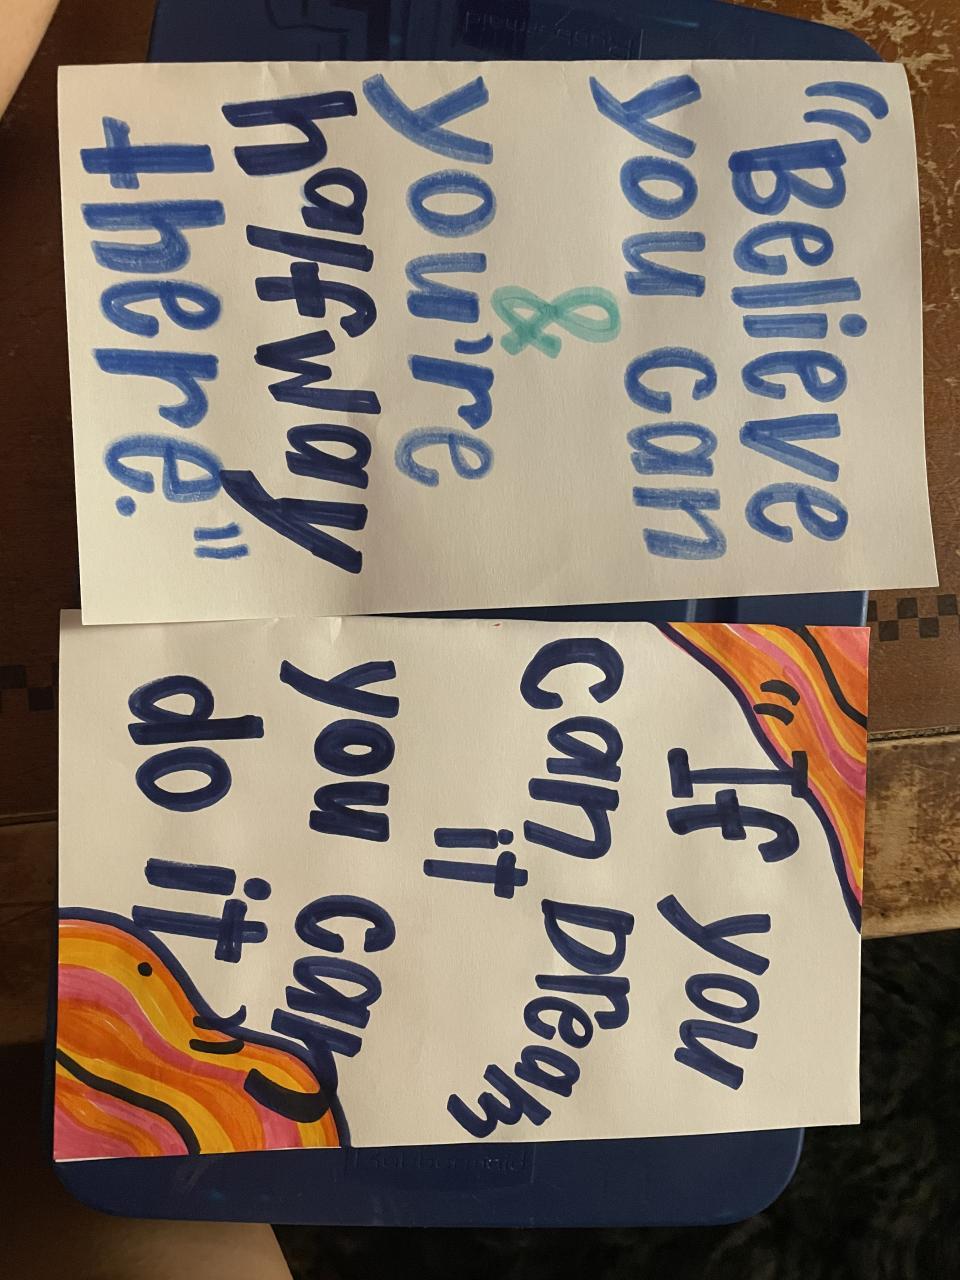 "Believe
you can
&
you're
halfway
there."
"If you
can Dream
it
you can
do it."
Rubbermaid
Rubbermaid